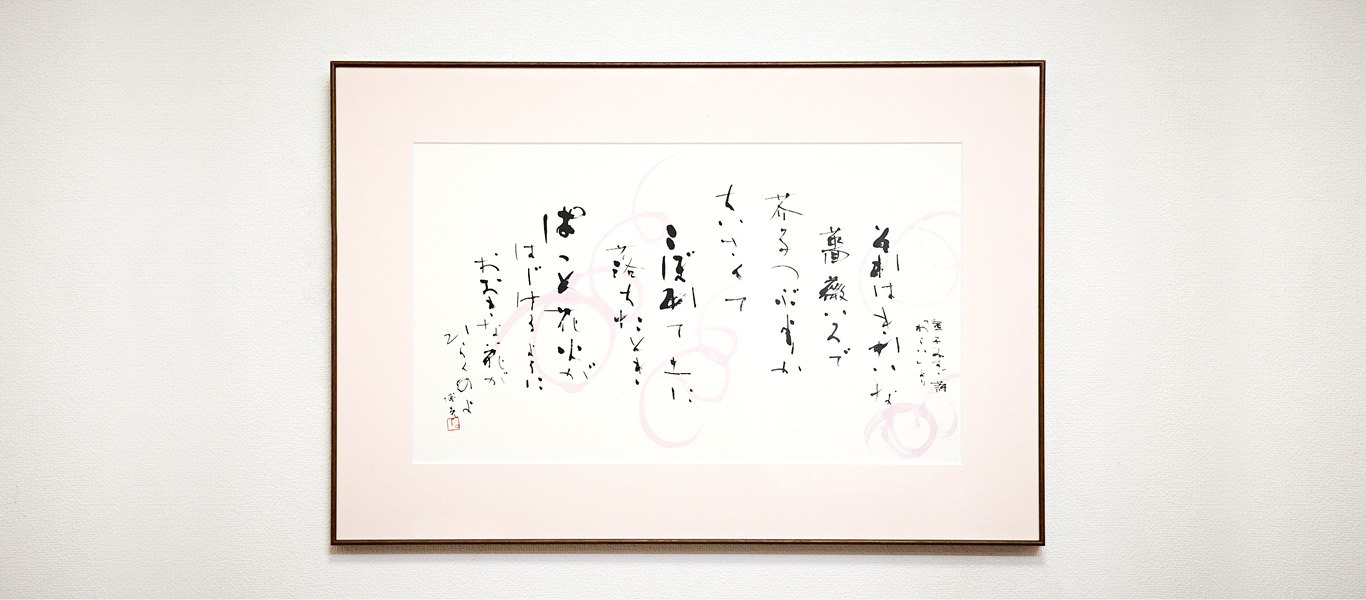 金子みすゞ詩
わらいより
それはきれいな
薔薇いろで
芥子つぶよりか
ちいさくて
こぼれて土に
落ちたとき
ぱっと花火が
はじけるように
おおきな花が
ひらくのよ